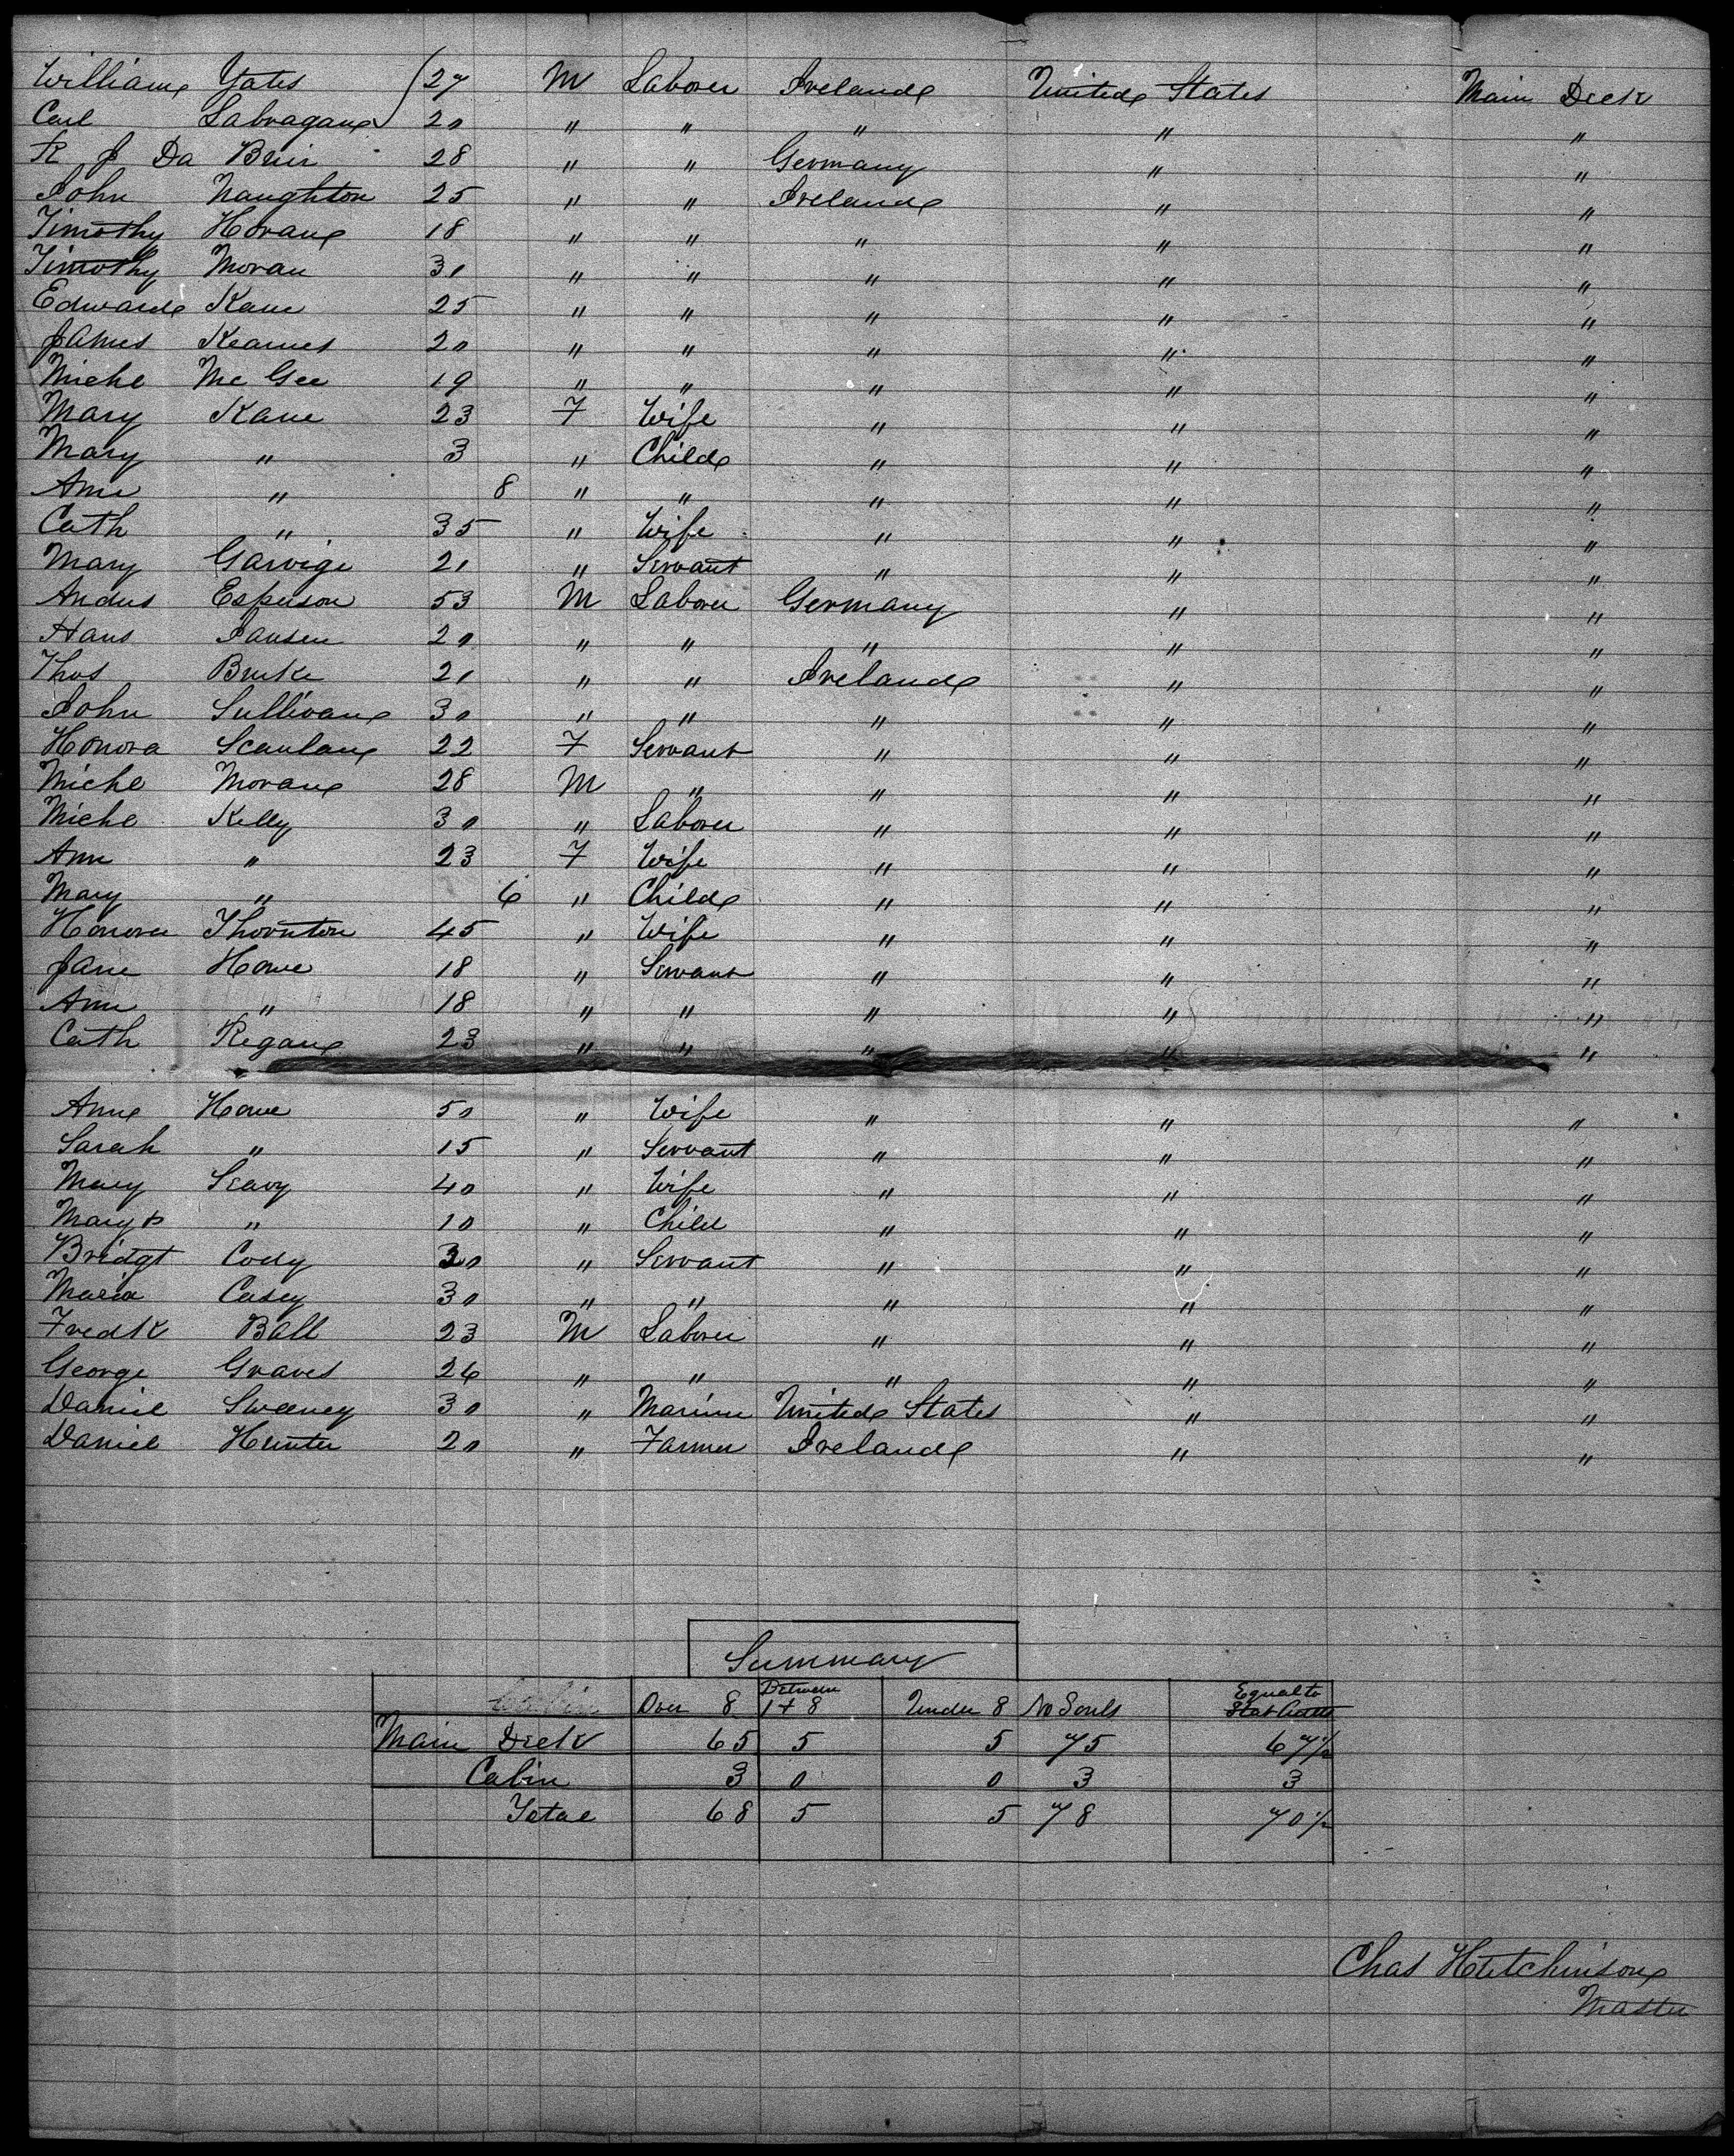 William Yates 27 M Laborer Ireland United States Main Deck
Carl Labragan 20 " " " " "
R J Da Brie 28 " " Germany " "
John Naughton 25 " " Ireland " "
Timothy Horan 18 " " " " "
Timothy Moran 31 " " " " "
Edward Kane 25 " " " " "
James Kearnes 20 " " " " "
Michl Mc Gee 19 " " " " "
Mary Kane 23 F Wife " " "
Mary " 3 " Child " " "
Ann " 8 " " " " "
Cath " 35 " Wife " " "
Mary 21 " Servant " " "
Andus Esperson 53 M Laborer Germany " "
Hans Jansen 20 " " " " "
Thos Burke 21 " " Ireland " "
John Sullivan 30 " " " " "
Honora Scanlan 22 F Servant " " "
Michl Moran 28 M " " " "
Michl Kelly 30 " Laborer " " "
Ann " 23 F Wife " " "
Mary " 6 " Child " " "
Honora Thornton 45 " Wife " " "
Jane Howe 18 " Servant " " "
Ann " 18 " " " " "
Cath Regan 23 " " " " "
Ann Howe 50 " Wife " " "
Sarah " 15 " Servant " " "
Mary 40 " Wife " " "
Mary " 10 " Child " " "
Bridgt Cody 30 " Servant " " "
Maria Casey 30 " " " " "
Fredk Ball 23 M Laborer " " "
George Graves 26 " " " " "
Daniel Sweeney 30 " Marine United States " "
Daniel Hunter 20 " Farmer Ireland " "
Summary
Over 8 Between 1 + 8 Under 8 No Souls Equal to Stat Adults
Main Deck 65 5 5 75 67½
Cabin 3 0 0 3 3
Total 68 5 5 78 70½
Chas Hutchinson
Master